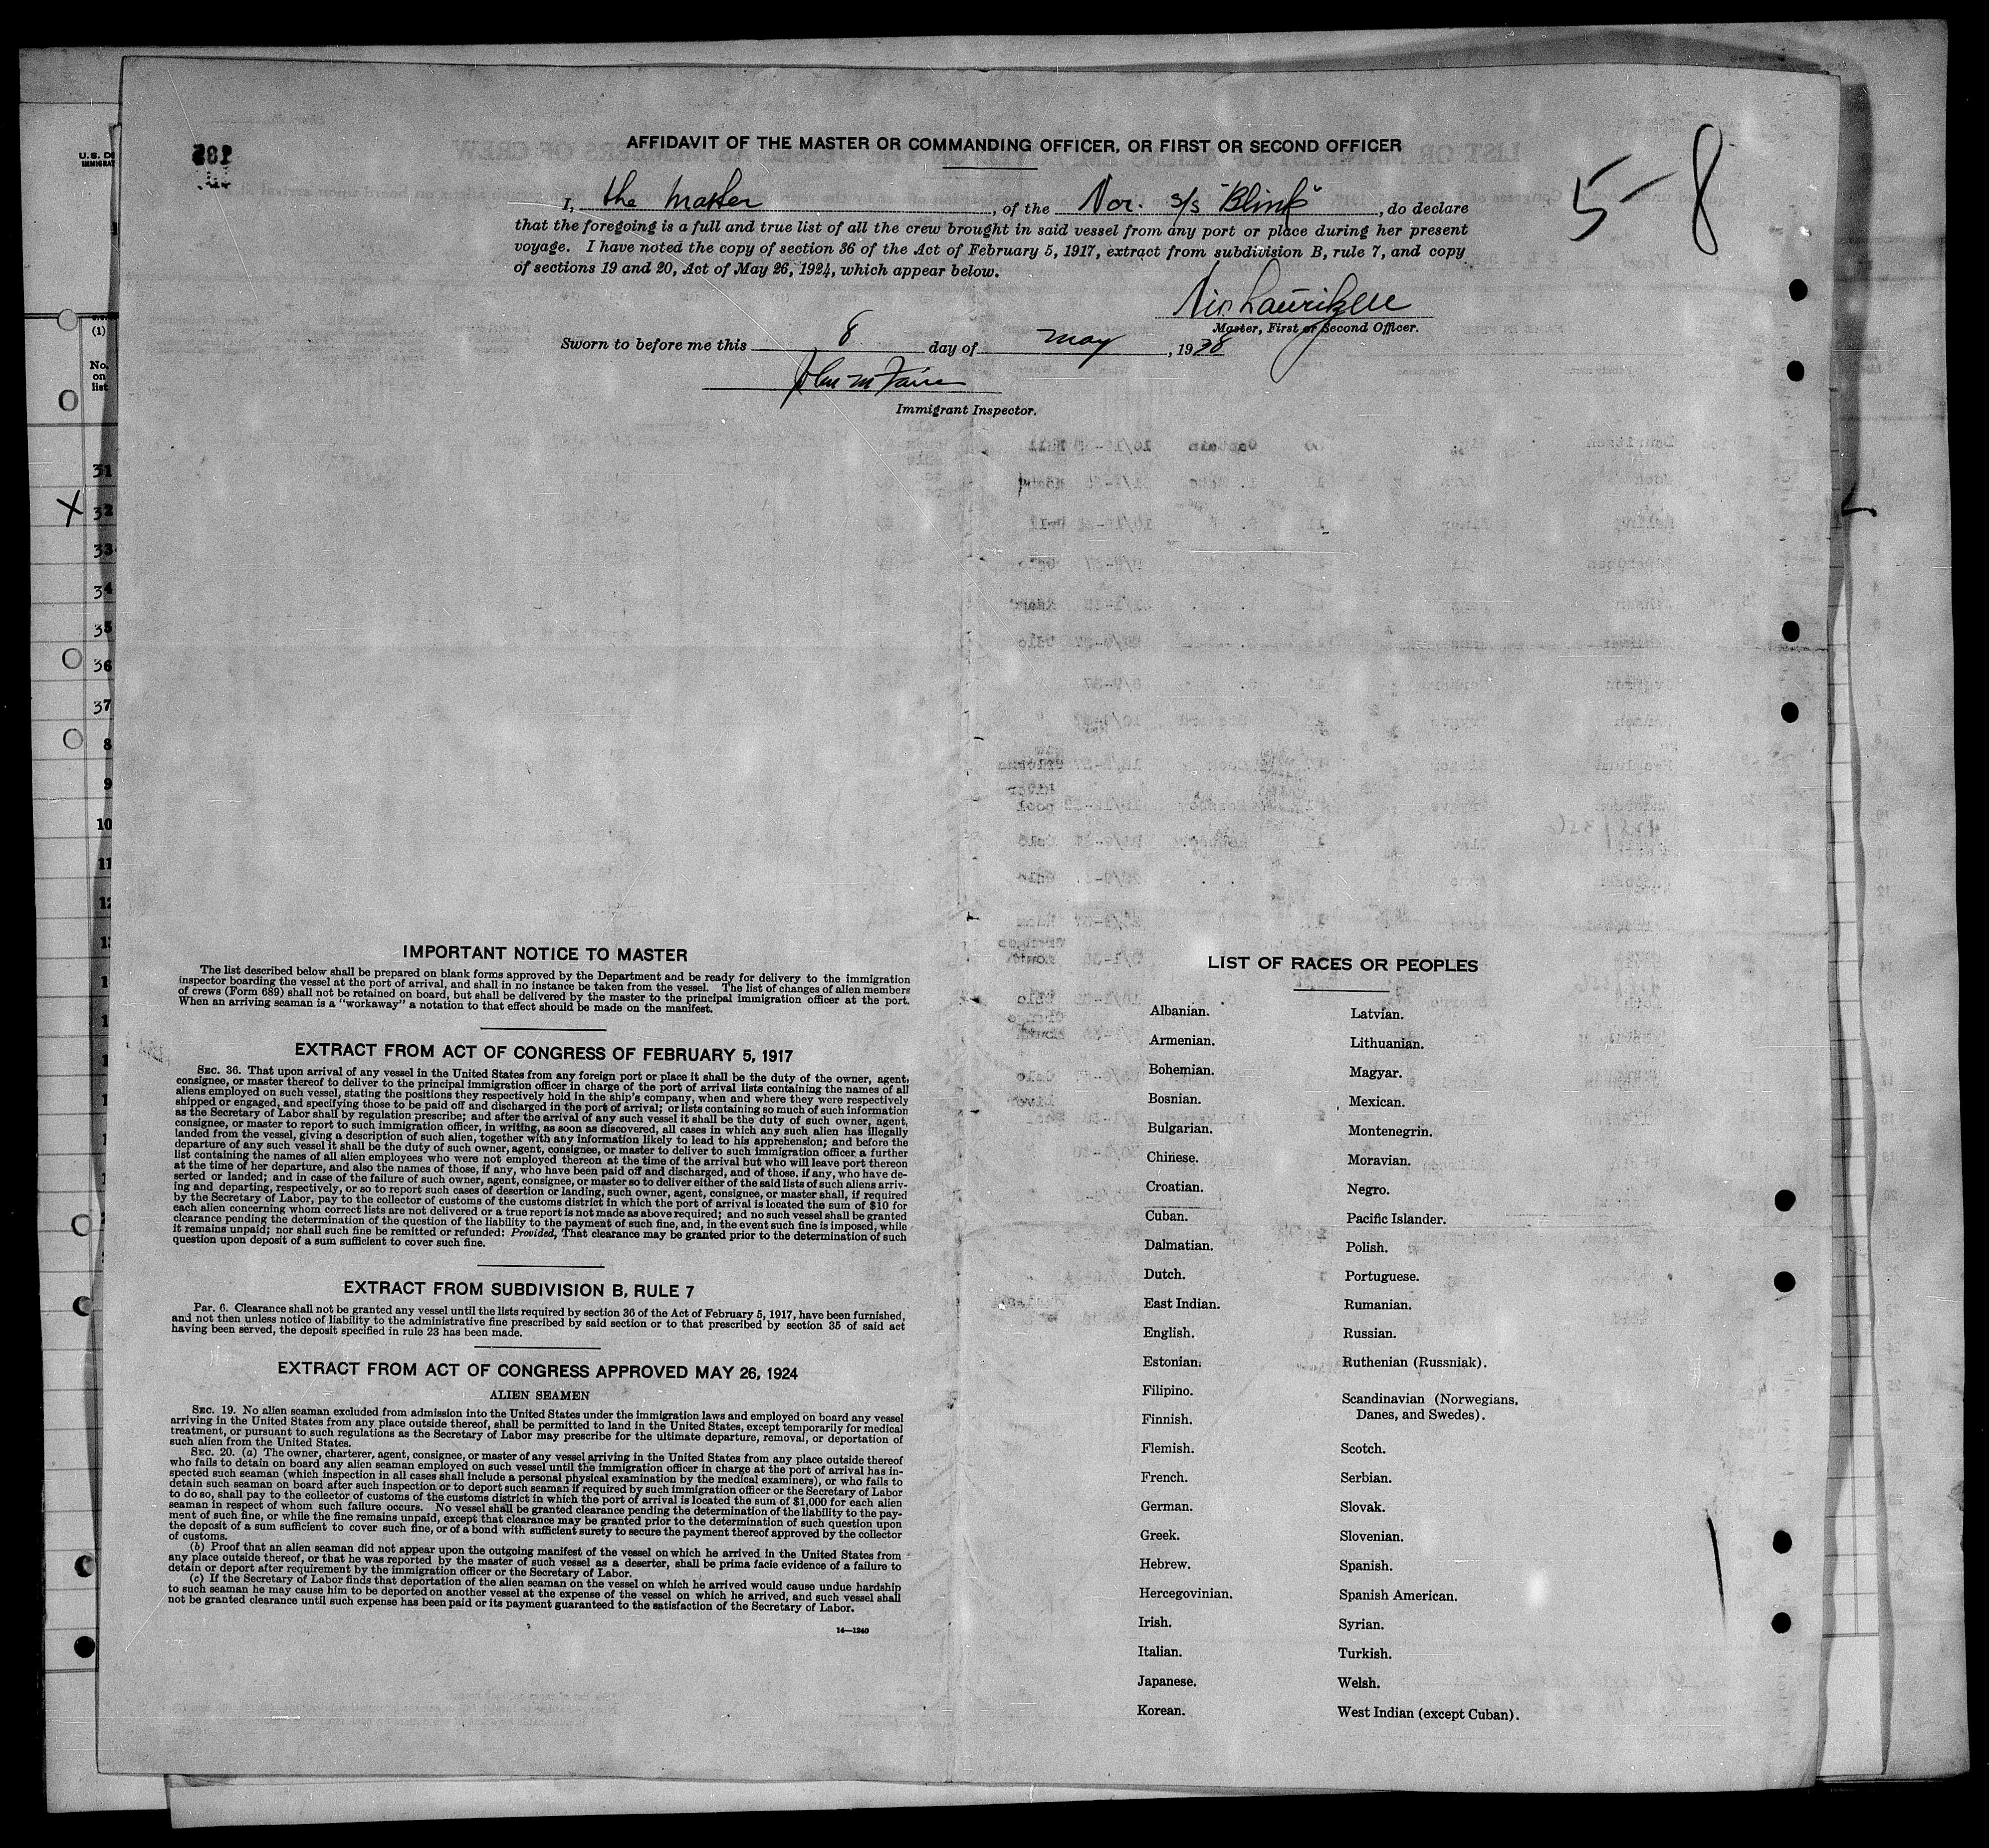 AFFIDAVIT OF THE MASTER OR COMMANDING OFFICER, OR FIRST OR SECOND OFFICER
5-8
I, the Master, of the Nor. s/s "Blink", do declare
that the foregoing is a full and true list of all the crew brought in said vessel from any port or place during her present
voyage. I have noted the copy of section 36 of the Act of February 5, 1917, extract from subdivision B, rule 7, and copy
of sections 19 and 20, Act of May 26, 1924, which appear below.
Master, First or Second Officer.
Sworn to before me this 8 day of May, 1938
Immigrant Inspector.
U.S. D
IMMIGRAT
(1)
No.
on
list
31
X 32
33
34
35
36
37
8
9
10
11
IMPORTANT NOTICE TO MASTER
The list described below shall be prepared on blank forms approved by the Department and be ready for delivery to the immigration
inspector boarding the vessel at the port of arrival, and shall in no instance be taken from the vessel. The list of changes of alien members
of crews (Form 689) shall not be retained on board, but shall be delivered by the master to the principal immigration officer at the port.
When an arriving seaman is a "workaway" a notation to that effect should be made on the manifest.
EXTRACT FROM ACT OF CONGRESS OF FEBRUARY 5, 1917
SEC. 36. That upon arrival of any vessel in the United States from any foreign port or place it shall be the duty of the owner, agent,
consignee, or master thereof to deliver to the principal immigration officer in charge of the port of arrival lists containing the names of all
aliens employed on such vessel, stating the positions they respectively hold in the ship's company, when and where they were respectively
shipped or engaged, and specifying those to be paid off and discharged in the port of arrival; or lists containing so much of such information
as the Secretary of Labor shall by regulation prescribe; and after the arrival of any such vessel it shall be the duty of such owner, agent,
consignee, or master to report to such immigration officer, in writing, as soon as discovered, all cases in which any such alien has illegally
landed from the vessel, giving a description of such alien, together with any information likely to lead to his apprehension; and before the
departure of any such vessel it shall be the duty of such owner, agent, consignee, or master to deliver to such immigration officer a further
list containing the names of all alien employees who were not employed thereon at the time of the arrival but who will leave port thereon
at the time of her departure, and also the names of those, if any, who have been paid off and discharged, and of those, if any, who have de-
serted or landed; and in case of the failure of such owner, agent, consignee, or master so to deliver either of the said lists of such aliens arriv-
ing and departing, respectively, or so to report such cases of desertion or landing, such owner, agent, consignee, or master shall, if required
by the Secretary of Labor, pay to the collector of customs of the customs district in which the port of arrival is located the sum of $10 for
each alien concerning whom correct lists are not delivered or a true report is not made as above required; and no such vessel shall be granted
clearance pending the determination of the question of the liability to the payment of such fine, and, in the event such fine is imposed, while
it remains unpaid; nor shall such fine be remitted or refunded: Provided, That clearance may be granted prior to the determination of such
question upon deposit of a sum sufficient to cover such fine.
EXTRACT FROM SUBDIVISION B, RULE 7
Par. 6. Clearance shall not be granted any vessel until the lists required by section 36 of the Act of February 5, 1917, have been furnished,
and not then unless notice of liability to the administrative fine prescribed by said section or to that prescribed by section 35 of said act
having been served, the deposit specified in rule 23 has been made.
EXTRACT FROM ACT OF CONGRESS APPROVED MAY 26, 1924
ALIEN SEAMEN
SEC. 19. No alien seaman excluded from admission into the United States under the immigration laws and employed on board any vessel
arriving in the United States from any place outside thereof, shall be permitted to land in the United States, except temporarily for medical
treatment, or pursuant to such regulations as the Secretary of Labor may prescribe for the ultimate departure, removal, or deportation of
such alien from the United States.
SEC. 20. (a) The owner, charterer, agent, consignee, or master of any vessel arriving in the United States from any place outside thereof
who fails to detain on board any alien seaman employed on such vessel until the immigration officer in charge at the port of arrival has in-
spected such seaman (which inspection in all cases shall include a personal physical examination by the medical examiners), or who fails to
detain such seaman on board after such inspection or to deport such seaman if required by such immigration officer or the Secretary of Labor
to do so, shall pay to the collector of customs of the customs district in which the port of arrival is located the sum of $1,000 for each alien
seaman in respect of whom such failure occurs. No vessel shall be granted clearance pending the determination of the liability to the pay-
ment of such fine, or while the fine remains unpaid, except that clearance may be granted prior to the determination of such question upon
the deposit of a sum sufficient to cover such fine, or of a bond with sufficient surety to secure the payment thereof approved by the collector
of customs.
(b) Proof that an alien seaman did not appear upon the outgoing manifest of the vessel on which he arrived in the United States from
any place outside thereof, or that he was reported by the master of such vessel as a deserter, shall be prima facie evidence of a failure to
detain or deport after requirement by the immigration officer or the Secretary of Labor.
(c) If the Secretary of Labor finds that deportation of the alien seaman on the vessel on which he arrived would cause undue hardship
to such seaman he may cause him to be deported on another vessel at the expense of the vessel on which he arrived, and such vessel shall
not be granted clearance until such expense has been paid or its payment guaranteed to the satisfaction of the Secretary of Labor.
14—1240
LIST OF RACES OR PEOPLES
Albanian.
Armenian.
Bohemian.
Bosnian.
Bulgarian.
Chinese.
Croatian.
Cuban.
Dalmatian.
Dutch.
East Indian.
English.
Estonian.
Filipino.
Finnish.
Flemish.
French.
German.
Greek.
Hebrew.
Hercegovinian.
Irish.
Italian.
Japanese.
Korean.
Latvian.
Lithuanian.
Magyar.
Mexican.
Montenegrin.
Moravian.
Negro.
Pacific Islander.
Polish.
Portuguese.
Rumanian.
Russian.
Ruthenian (Russniak).
Scandinavian (Norwegians,
Danes, and Swedes).
Scotch.
Serbian.
Slovak.
Slovenian.
Spanish.
Spanish American.
Syrian.
Turkish.
Welsh.
West Indian (except Cuban).